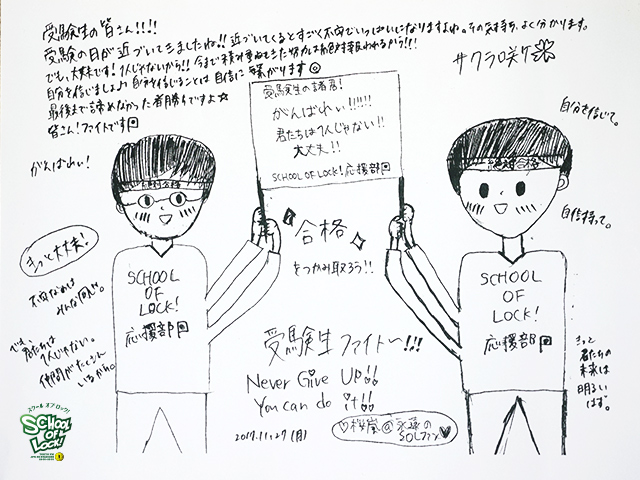 受験生の皆さん!!!!
受験の日が近づいてきましたね!! 近づいてくるとすごく不安でいっぱいになりますよね。その気持ち、よく分かります。
でも、大丈夫です!1人じゃないから!! 今まで積み重ねてきた努力は絶対報われるから!!!
自分を信じましょ♪♪ 自分を信じることは自信に繋がります☺
最後まで諦めなかった者勝ちですよ☆
皆さん!ファイトです
サクラ咲ケ
がんばれぃ!
受験生の諸君!
がんばれぃ!!!!!!
君たちは1人じゃない!!
大丈夫!!
SCHOOL OF LOCK!応援部
自分を信じて。
自信持って。
絶対合格
絶対合格
合格
をつかみ取ろう!!
きっと大丈夫!
不安なのは
みんな同じ。
でも、
君たちは
1人じゃない。
仲間がたくさん
いるから。
SCHOOL
OF
LOCK!
応援部
SCHOOL
OF
LOCK!
応援部
受験生ファイト〜!!!
Never Give UP!!
You can do it!!
きっと
君たちの
未来は
明るい
はず。
2017.11.27(月)
♡桜嵐@永遠の
SOLファン♥
スクール オブ ロック!
SCHOOL
OF
LOCK!